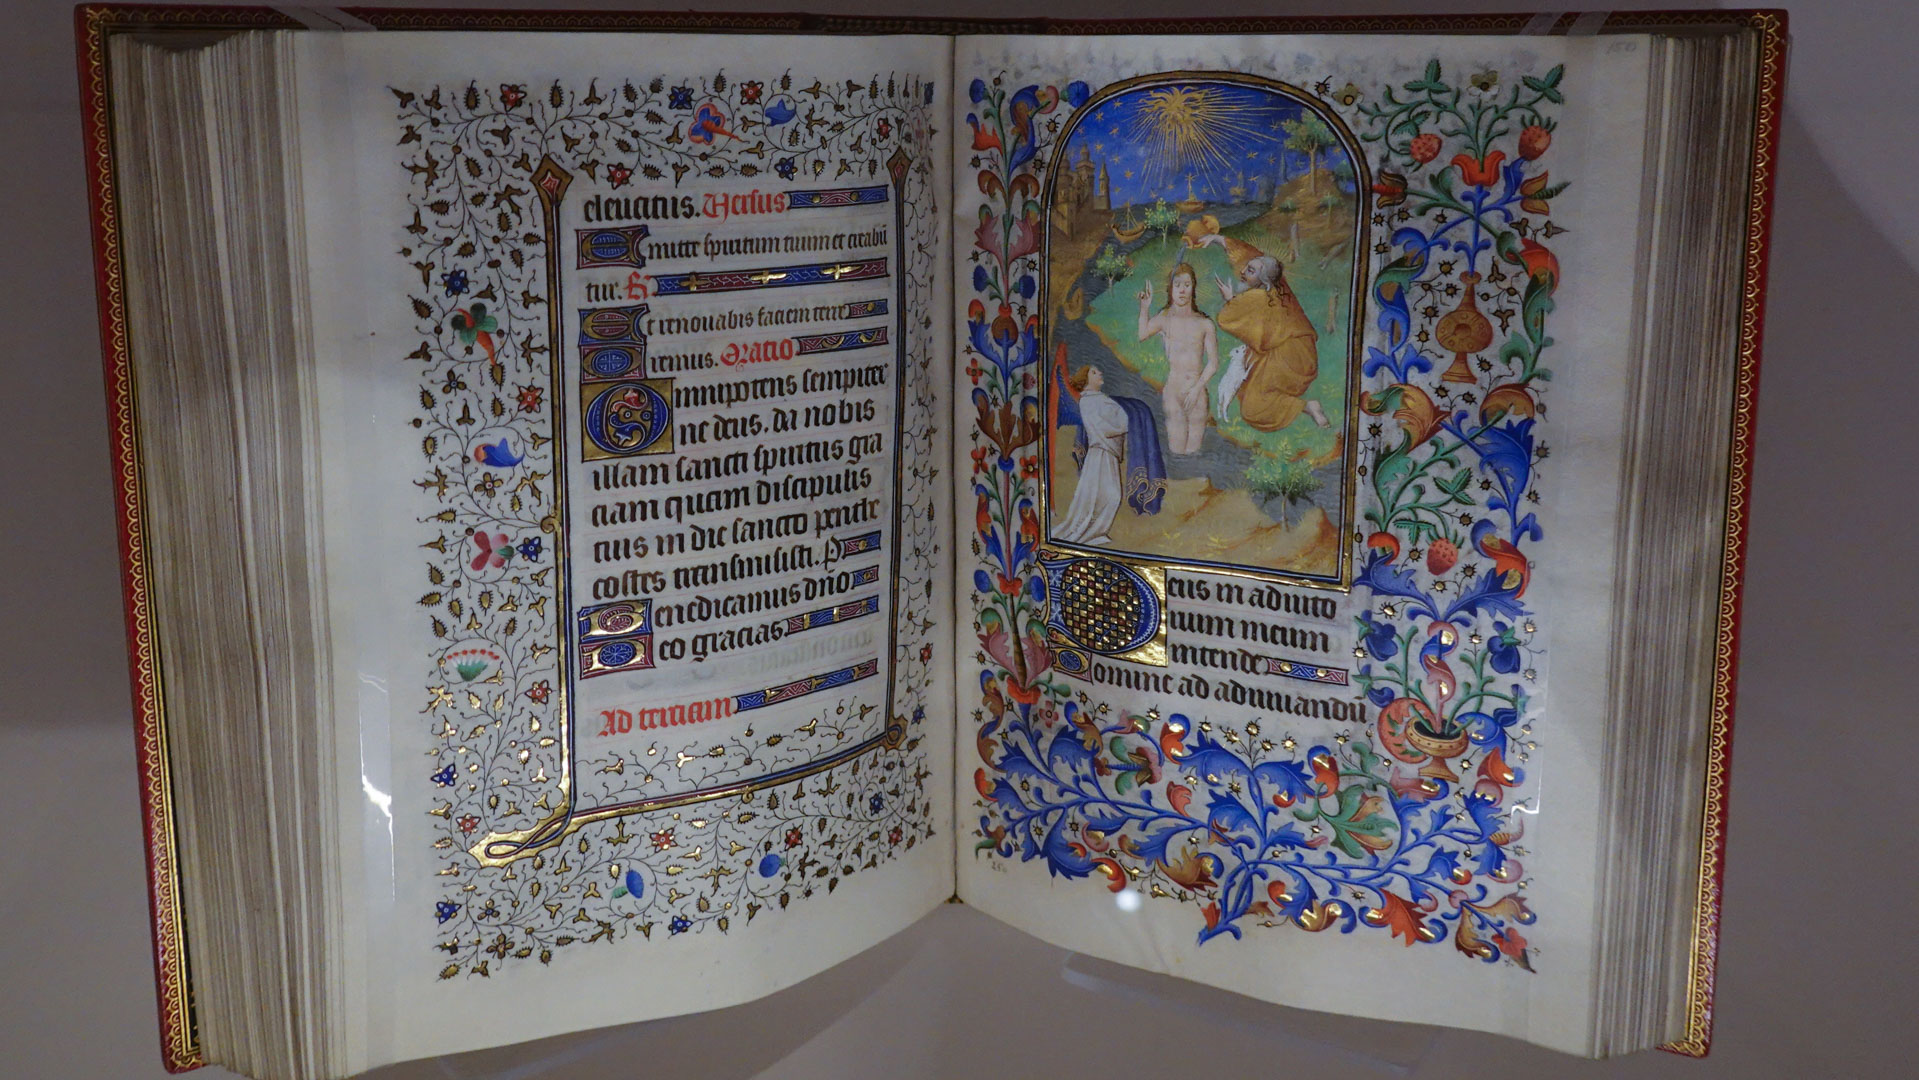 eleucitus. Versus
Emitte spiritum tuum et creabū
tur. R
Et renouabis faciem terre
Oremus. Oratio
Omnipotens sempiter
ne deus. da nobis
illam sancti spiritus gra
ciam quam discipulis
tuis in die sancto penthe
costes transmisisti. P
Benedicamus dño
Deo gracias.
Ad terciam
Deus in adiuto
rium meum
intende
Domine ad adiuuandū